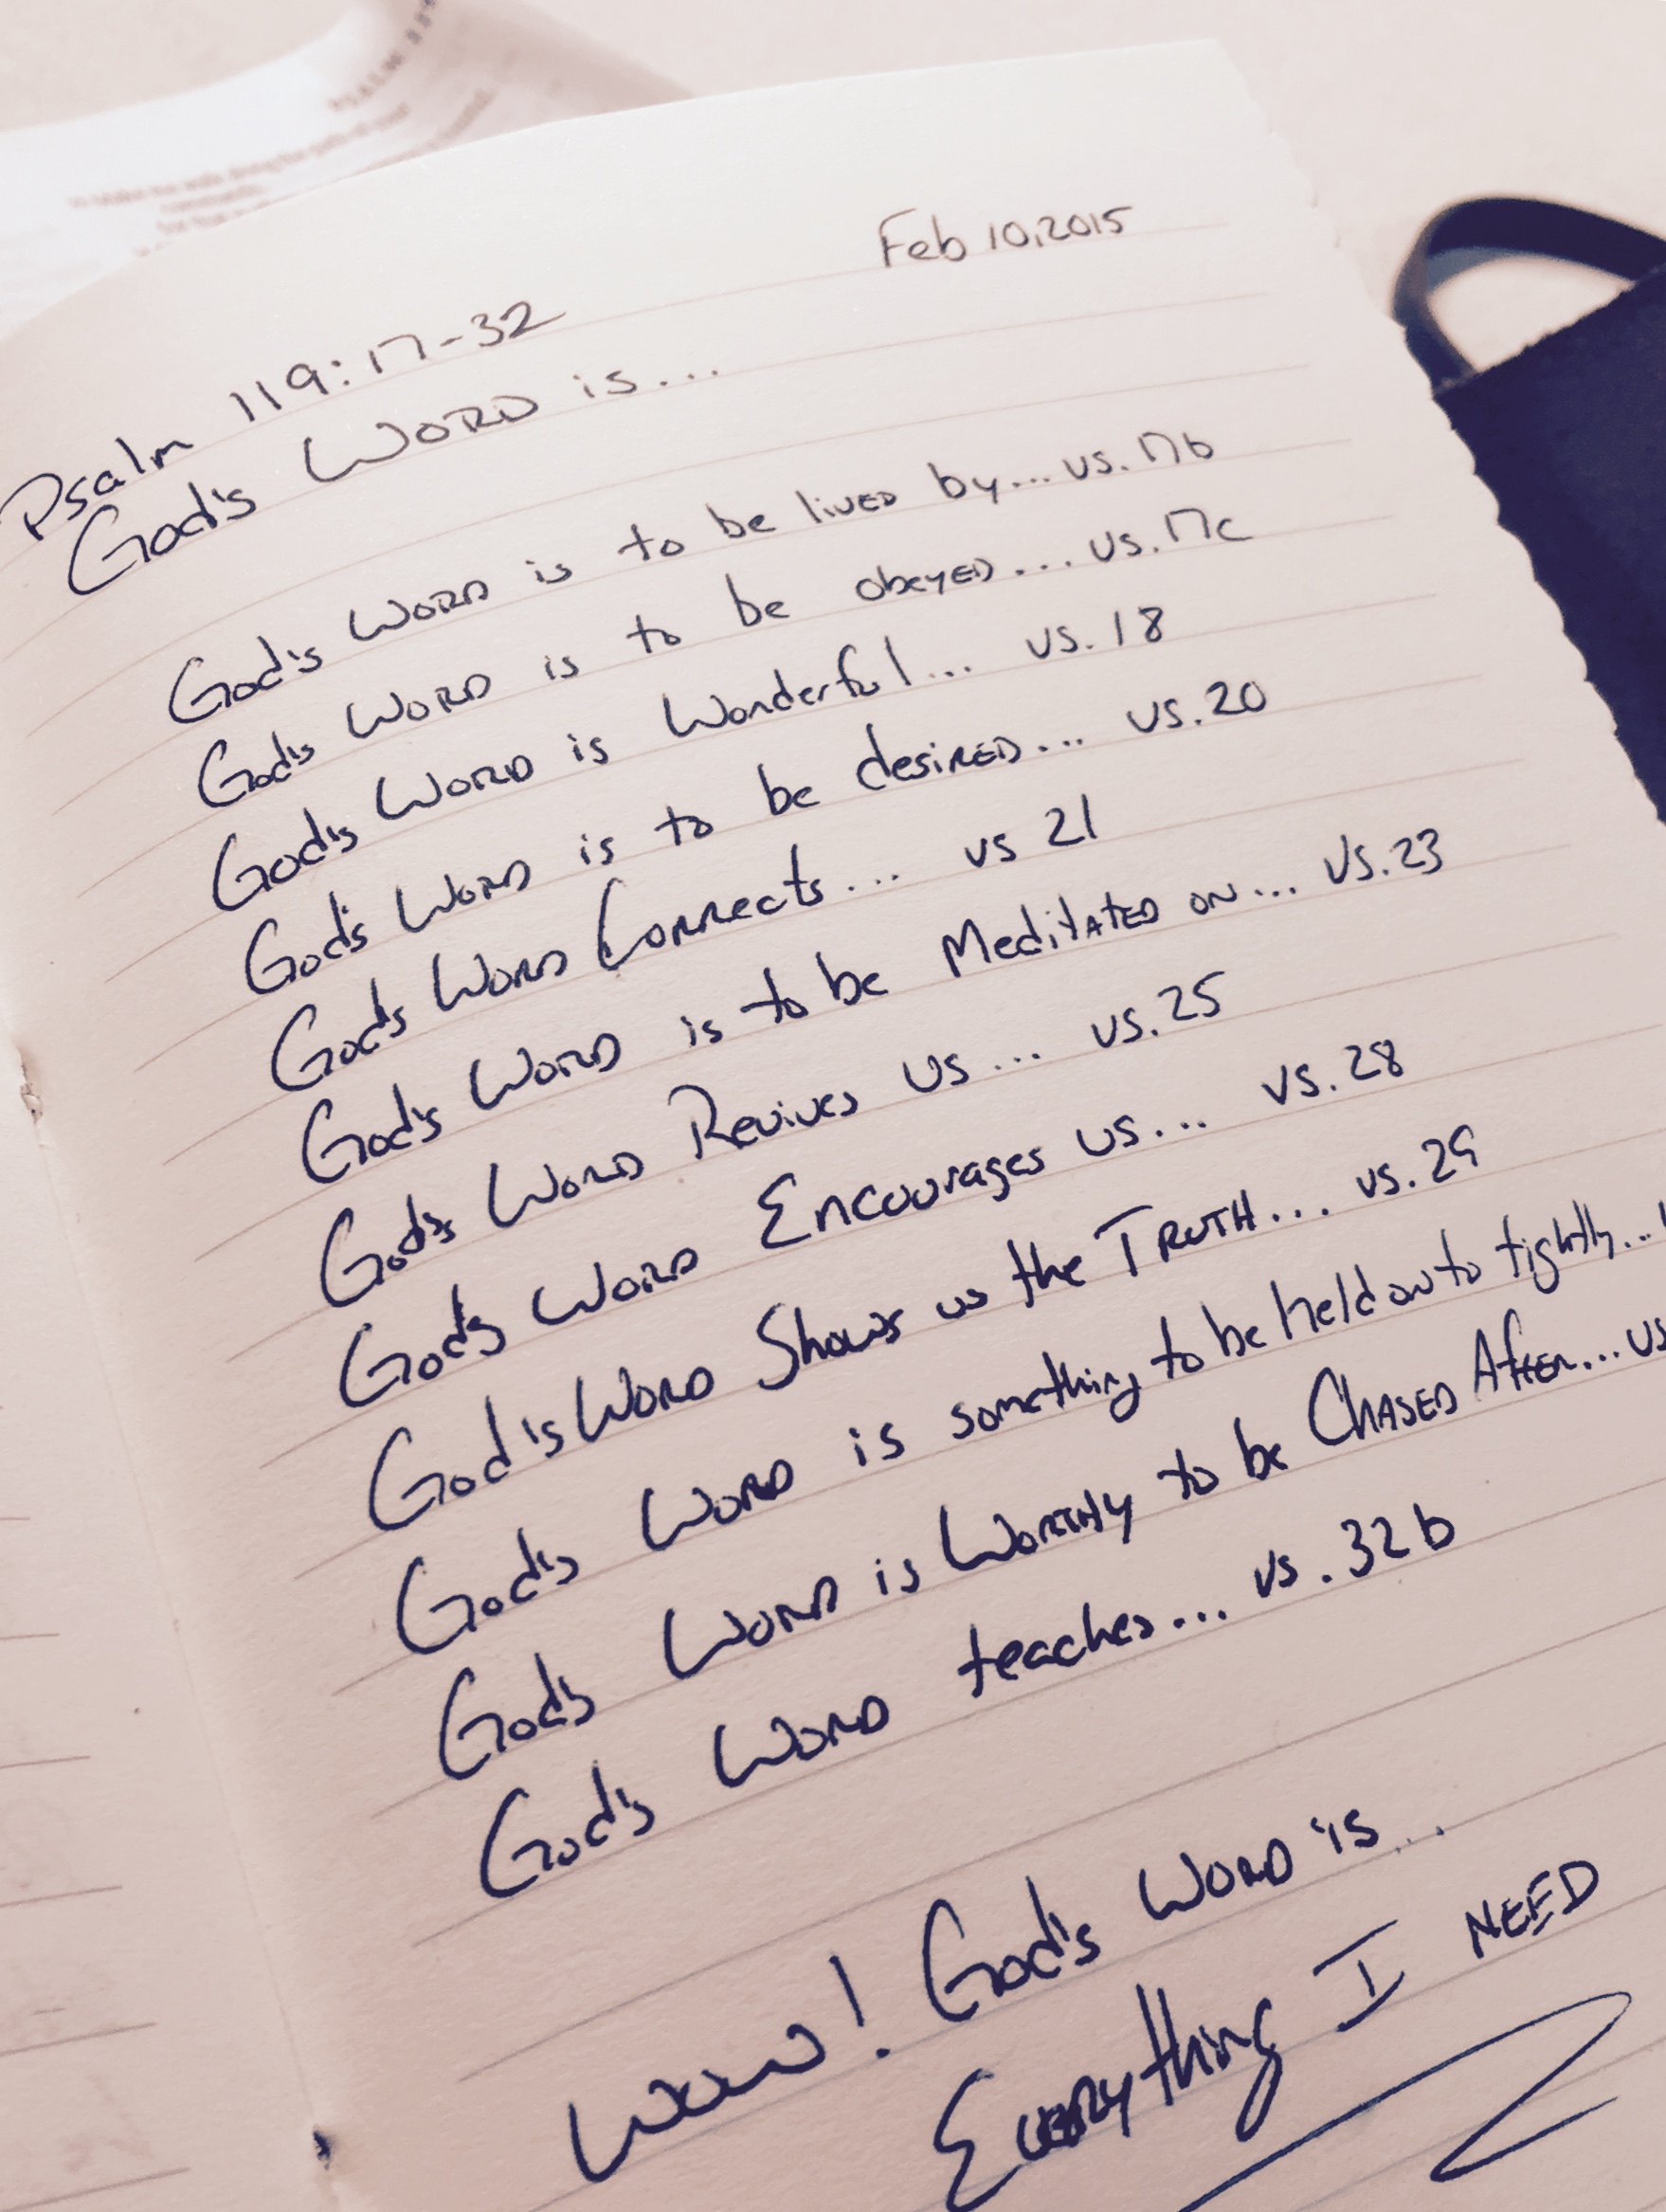 Feb 10, 2015
Psalm 119:17-32
God's Word is...
God's Word is to be lived by... vs. 17b
God's Word is to be obeyed... vs. 17c
God's Word is Wonderful... vs. 18
God's Word is to be desired... vs. 20
God's Word Corrects... vs 21
God's Word is to be Meditated on... vs. 23
God's Word Revives us... vs. 25
God's Word Encourages us... vs. 28
God's Word Shows us the TRUTH... vs. 29
God's Word is something to be held onto tightly...
God's Word is Worthy to be Chased After... vs
God's Word teaches... vs. 32b
Wow! God's Word is...
Everything I NEED